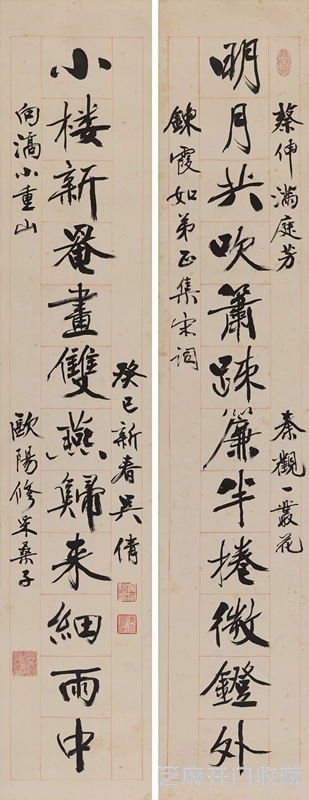 蔡伸滿庭芳
秦觀一叢花
明月共吹簫疎簾半捲微鐙外
鍊霞如弟正集宋詞
小楼新罨畫雙燕歸来細雨中
癸巳新春吳倩
向滈小重山
歐陽修采桑子
芝麻开门收藏